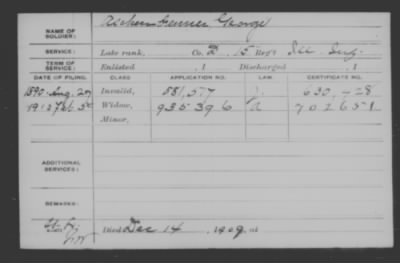 NAME OF SOLDIER: George
SERVICE: Late rank, Co. 15 Reg't Ill. Inf.
TERM OF SERVICE: Enlisted , 1 Discharged , 1
DATE OF FILING. CLASS APPLICATION NO. LAW. CERTIFICATE NO.
1890 Aug. Invalid, 881,577 630,428
1912 Feb Widow, 935396 a 702651
Minor,
ADDITIONAL SERVICES:
REMARKS:
Died Dec 14, 1909, at